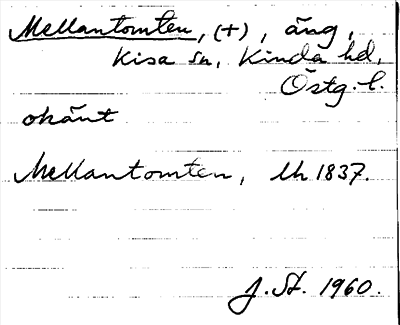 Mellantomten, (+), äng,
Kisa sn, Kinda hd,
Östg. l.
okänt
Mellantomten, lh 1837.
J. St. 1960.